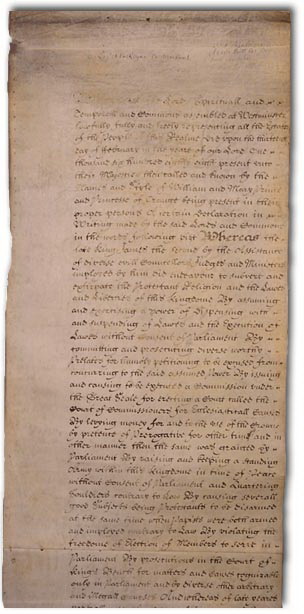 Lords Spirituall and
Temporall and Commons assembled at Westminster
Lawfully fully and freely Representing all the Estates
of the People of this Realme did upon the thirteenth
day of February in the yeare of our Lord One
thousand six hundred eighty eight present unto
their Majesties then called and known by the
Names and Stile of William and Mary Prince
and Princesse of Orange being present in their
proper persons A certain declaration in
Writeing made by the said Lords and Commons
in the words following viz Whereas the
late King James the Second by the Assistance
of diverse evill Councellors Judges and Ministers
imployed by him did endeavour to subvert and
extirpate the Protestant Religion and the Lawes
and Liberties of this Kingdome By assuming
and exercising a power of Dispensing with
and suspending of Lawes and the Execution of
Lawes without Consent of Parliament By
committing and prosecuting diverse worthy
Prelates for humbly petitioning to be excused from
concurring to the said assumed Power By issuing
and causing to be executed a Commission under
the Great Seale for erecting a Court called the
Court of Commissioners for Ecclesiasticall Causes
By levying money for and to the use of the Crowne
by pretence of Prerogative for other time and in
other manner then the same was granted by
Parliament By raising and keeping a standing
Army within this Kingdome in time of Peace
without Consent of Parliament and Quartering
Souldiers contrary to Law By causing severall
good Subjects being Protestants to be disarmed
at the same time when Papists were both armed
and imployed contrary to Law By violating the
freedome of Election of Members to serve in
Parliament By prosecutions in the Court of
Kings Bench for matters and Causes cognizable
only in Parliament and by diverse other arbitrary
and illegall Courses And whereas of late yeares